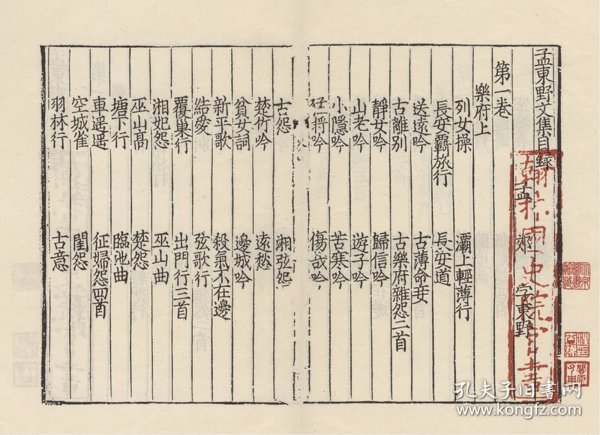 孟東野文集目録
孟 郊 字東野
第一卷
樂府上
列女操 灞上輕薄行
長安羈旅行 長安道
送遠吟 古薄命妾
古離別 古樂府雜怨三首
靜女吟 歸信吟
山老吟 遊子吟
小隱吟 苦寒吟
猛將吟 傷哉吟
古怨 湘弦怨
楚竹吟 遠愁
貧女詞 邊城吟
新平歌 殺氣不在邊
結愛 弦歌行
覆巢行 出門行二首
湘妃怨 巫山曲
巫山高 楚怨
塘下行 臨池曲
車遥遥 征婦怨四首
空城雀 閨怨
羽林行 古意
翰林國史院官書
孔夫子旧书网
www.kongfz.com